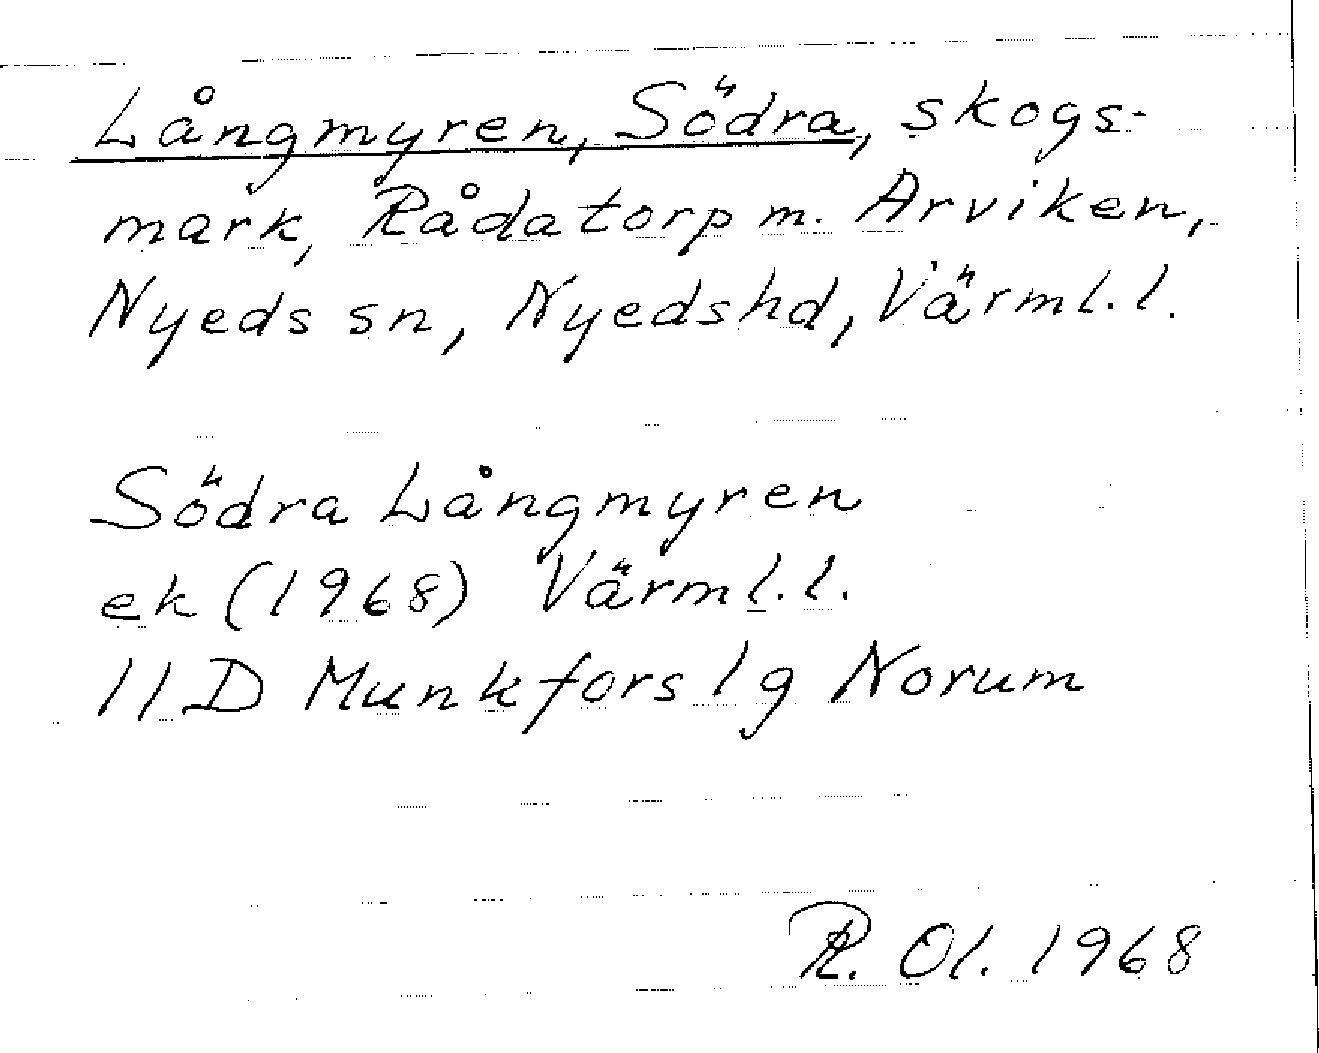 Långmyren, Södra, skogs-
mark, Rådatorp m. Arviken,
Nyeds sn, Nyedshd, Värml.l.
Södra Långmyren
ek (1968) Värml.l.
11D Munkfors 1g Norum
R. Ol. 1968